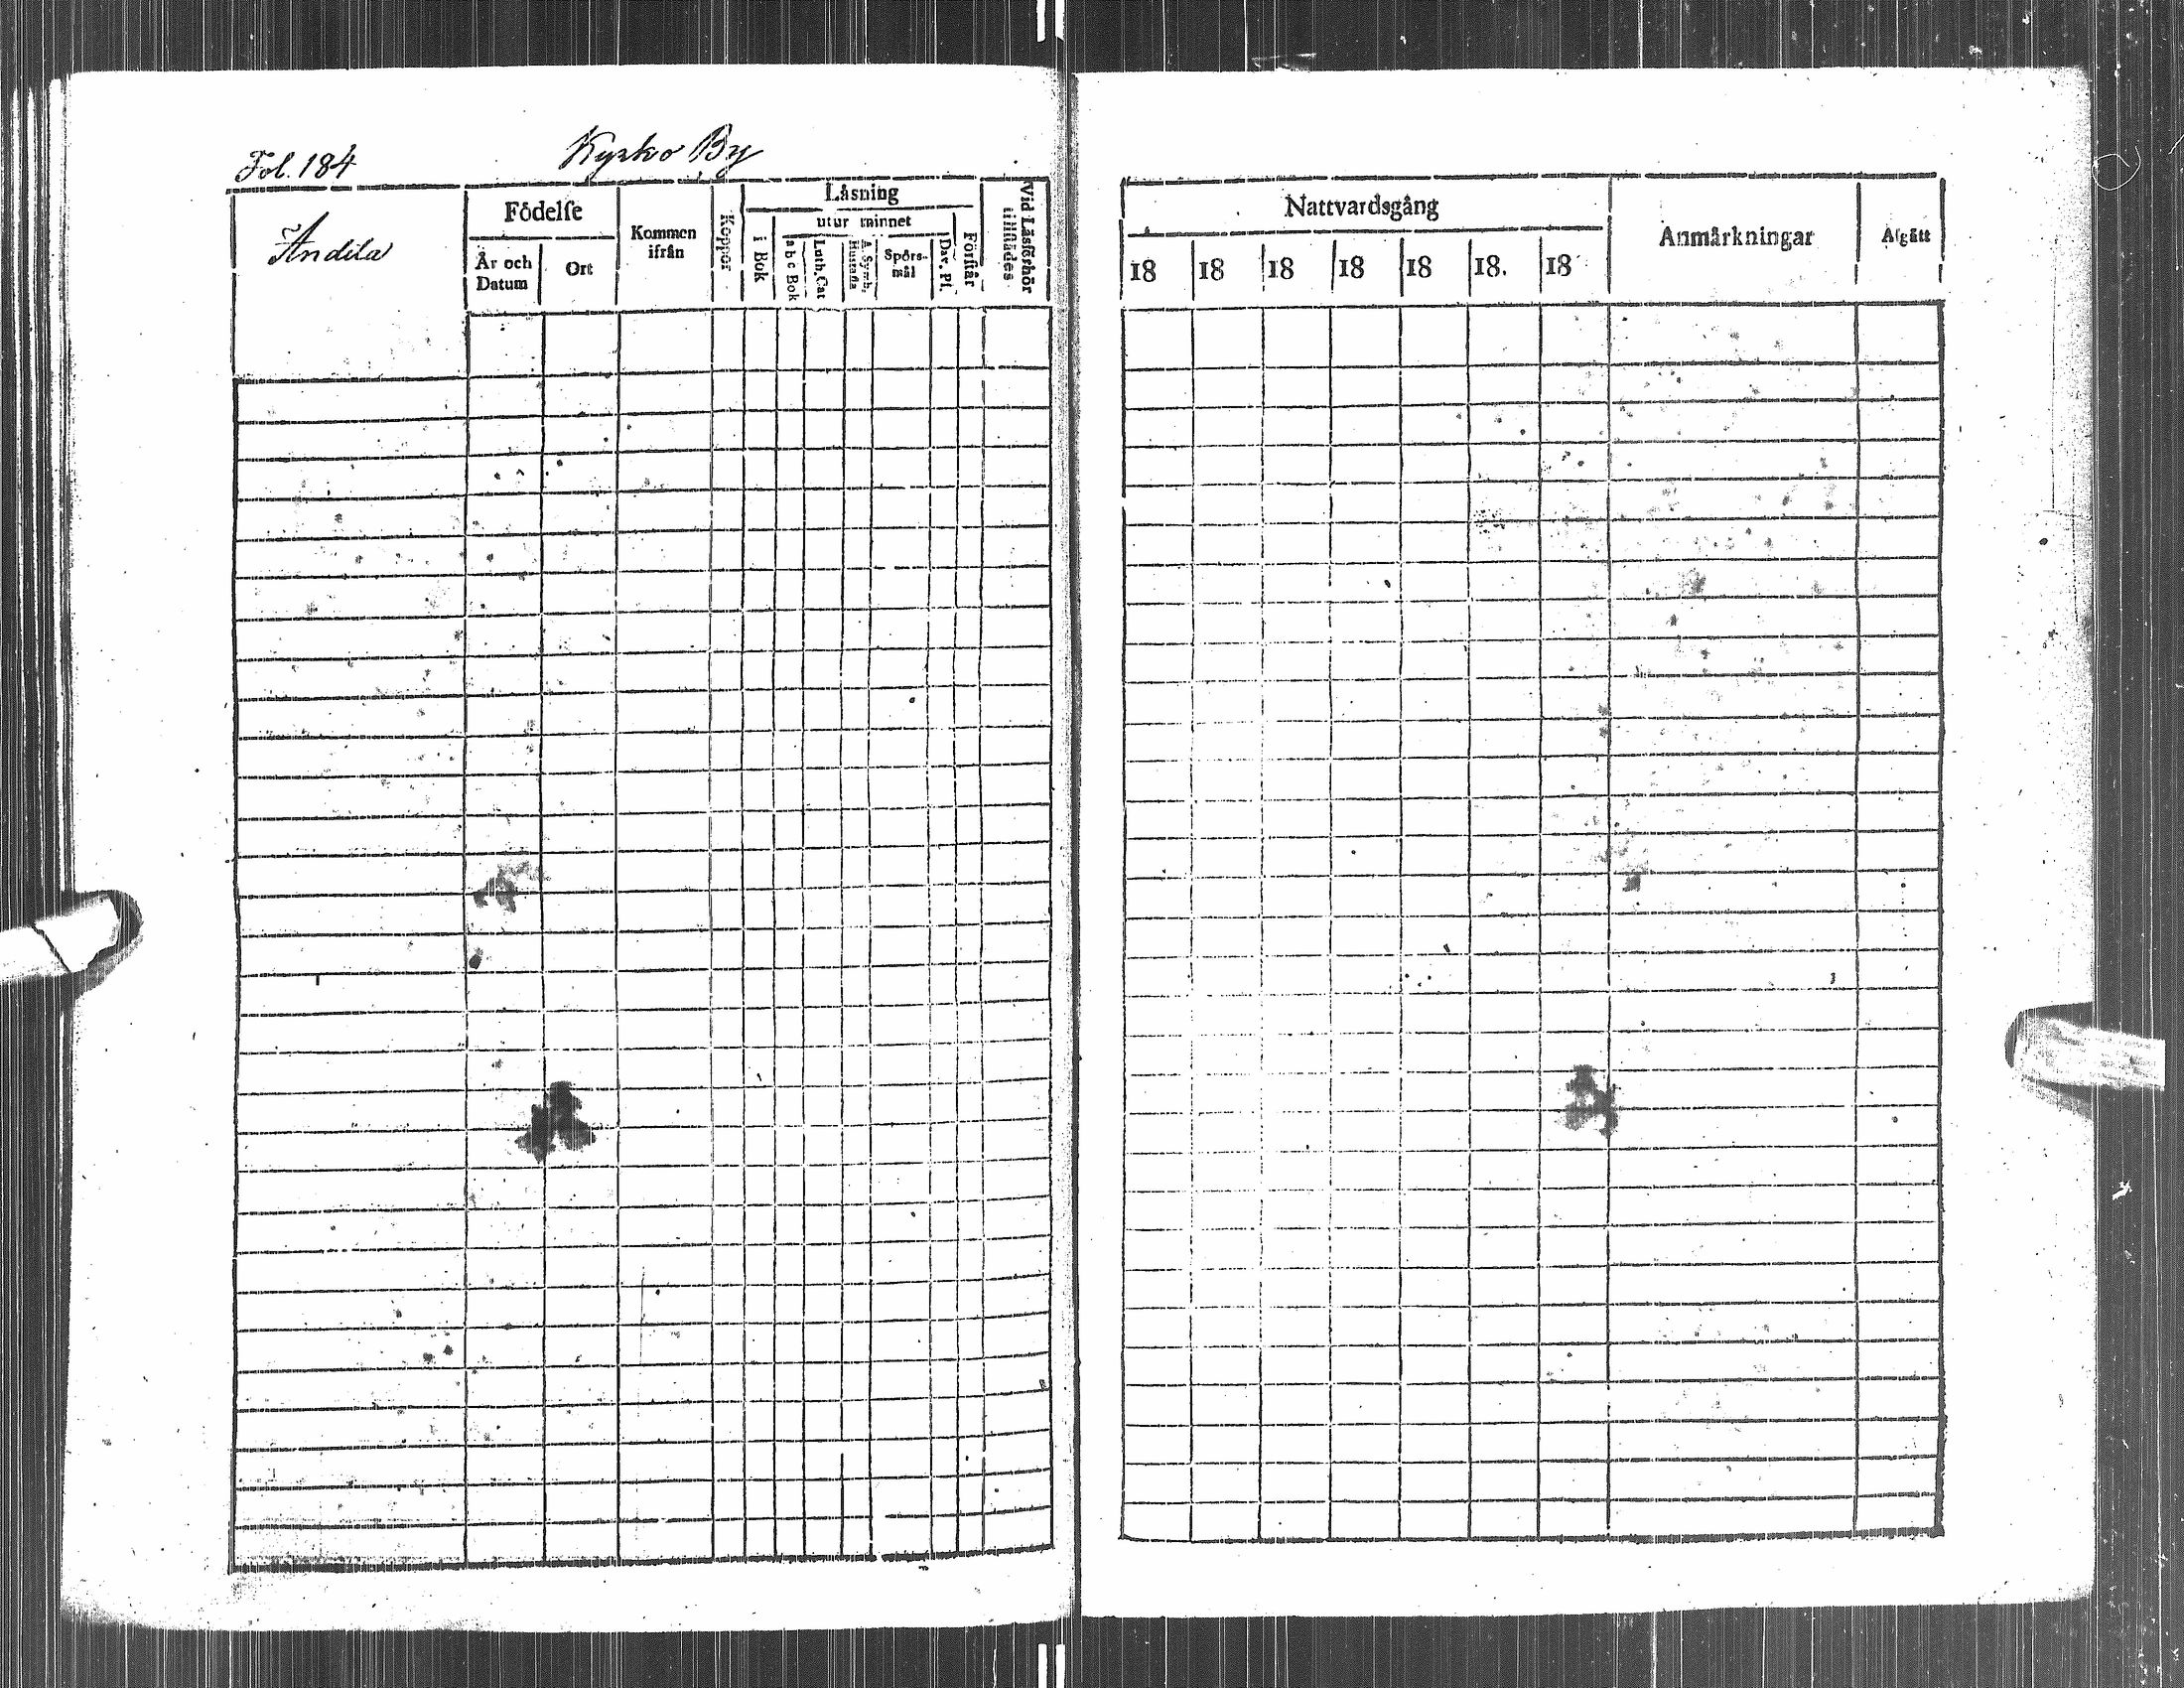 Fol. 184
Kyrko By
Andila
Födelse
År och
Datum
Ort
Kommen
ifrån
Koppor
Läsning
i Bok
utur minnet
a b c Bok
Luth. Cat
A. Symb.
Hustafla
Spörs-
mål
Dav. Ps.
Förstår
Vid Läsförhör
tillstädes
Nattvardsgång
18 18 18 18 18 18. 18
Anmärkningar
Afgått